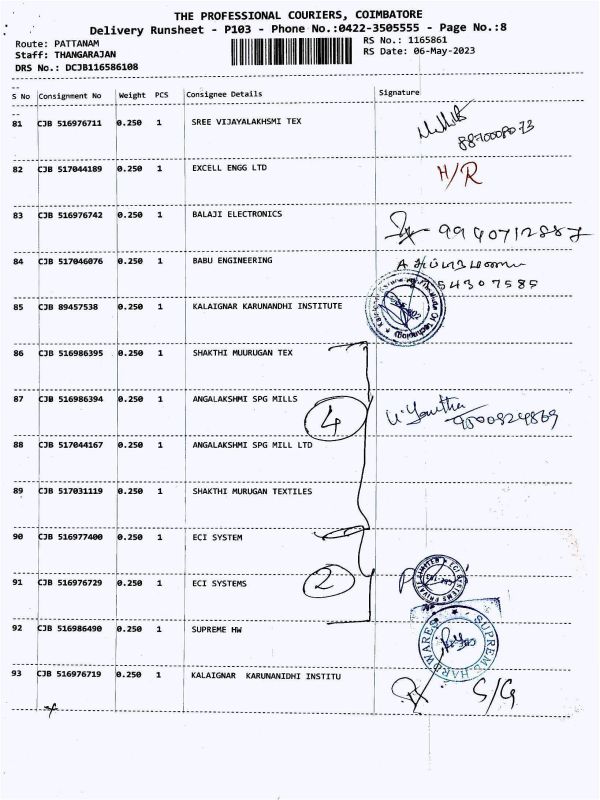 THE PROFESSIONAL COURIERS, COIMBATORE
Delivery Runsheet - P103 - Phone No.:0422-3505555 - Page No.:8
Route: PATTANAM RS No.: 1165861
Staff: THANGARAJAN RS Date: 06-May-2023
DRS No.: DCJB116586108
S No Consignment No Weight PCS Consignee Details Signature
81 CJB 516976711 0.250 1 SREE VIJAYALAKHSMI TEX
8870008073
82 CJB 517044189 0.250 1 EXCELL ENGG LTD H/R
83 CJB 516976742 0.250 1 BALAJI ELECTRONICS 9940712887
84 CJB 517046076 0.250 1 BABU ENGINEERING
54307585
85 CJB 89457538 0.250 1 KALAIGNAR KARUNANDHI INSTITUTE
86 CJB 516986395 0.250 1 SHAKTHI MUURUGAN TEX
87 CJB 516986394 0.250 1 ANGALAKSHMI SPG MILLS
4
88 CJB 517044167 0.250 1 ANGALAKSHMI SPG MILL LTD
89 CJB 517031119 0.250 1 SHAKTHI MURUGAN TEXTILES
90 CJB 516977400 0.250 1 ECI SYSTEM
91 CJB 516976729 0.250 1 ECI SYSTEMS 2
ECI SYSTEMS PRIVATE LIMITED
92 CJB 516986490 0.250 1 SUPREME HW
SUPREME HARDWARES
93 CJB 516976719 0.250 1 KALAIGNAR KARUNANIDHI INSTITU
S/G